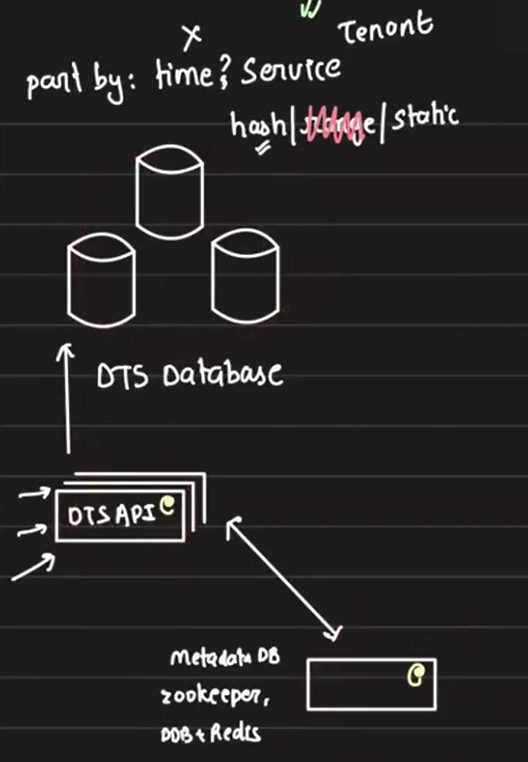 Tenant
x
part by: time? Service
hash|range|static
DTS Database
DTS API C
Metadata DB
C
zookeeper,
DDB + Redis